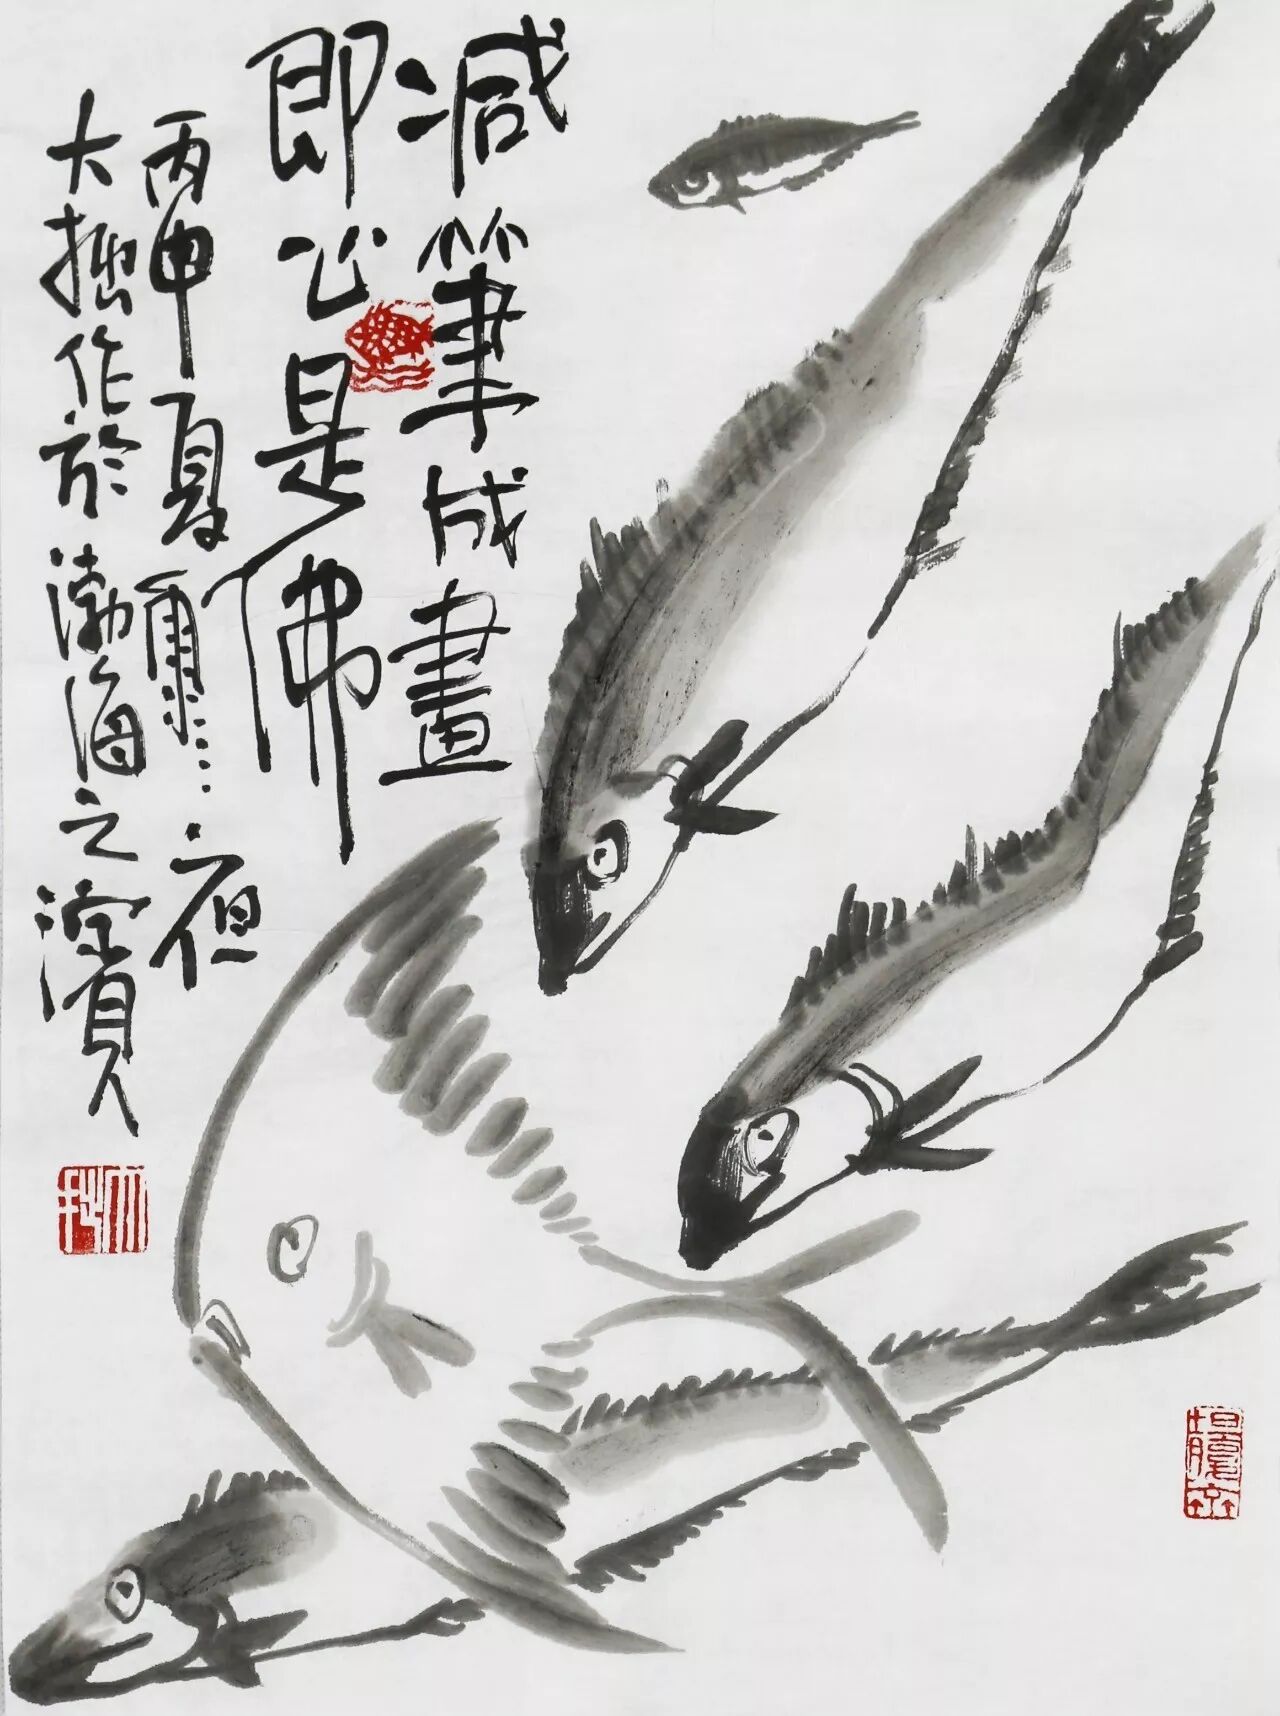 減筆成畫
即心是佛
丙申夏雨夜
大拙作於渤海之濱
大拙